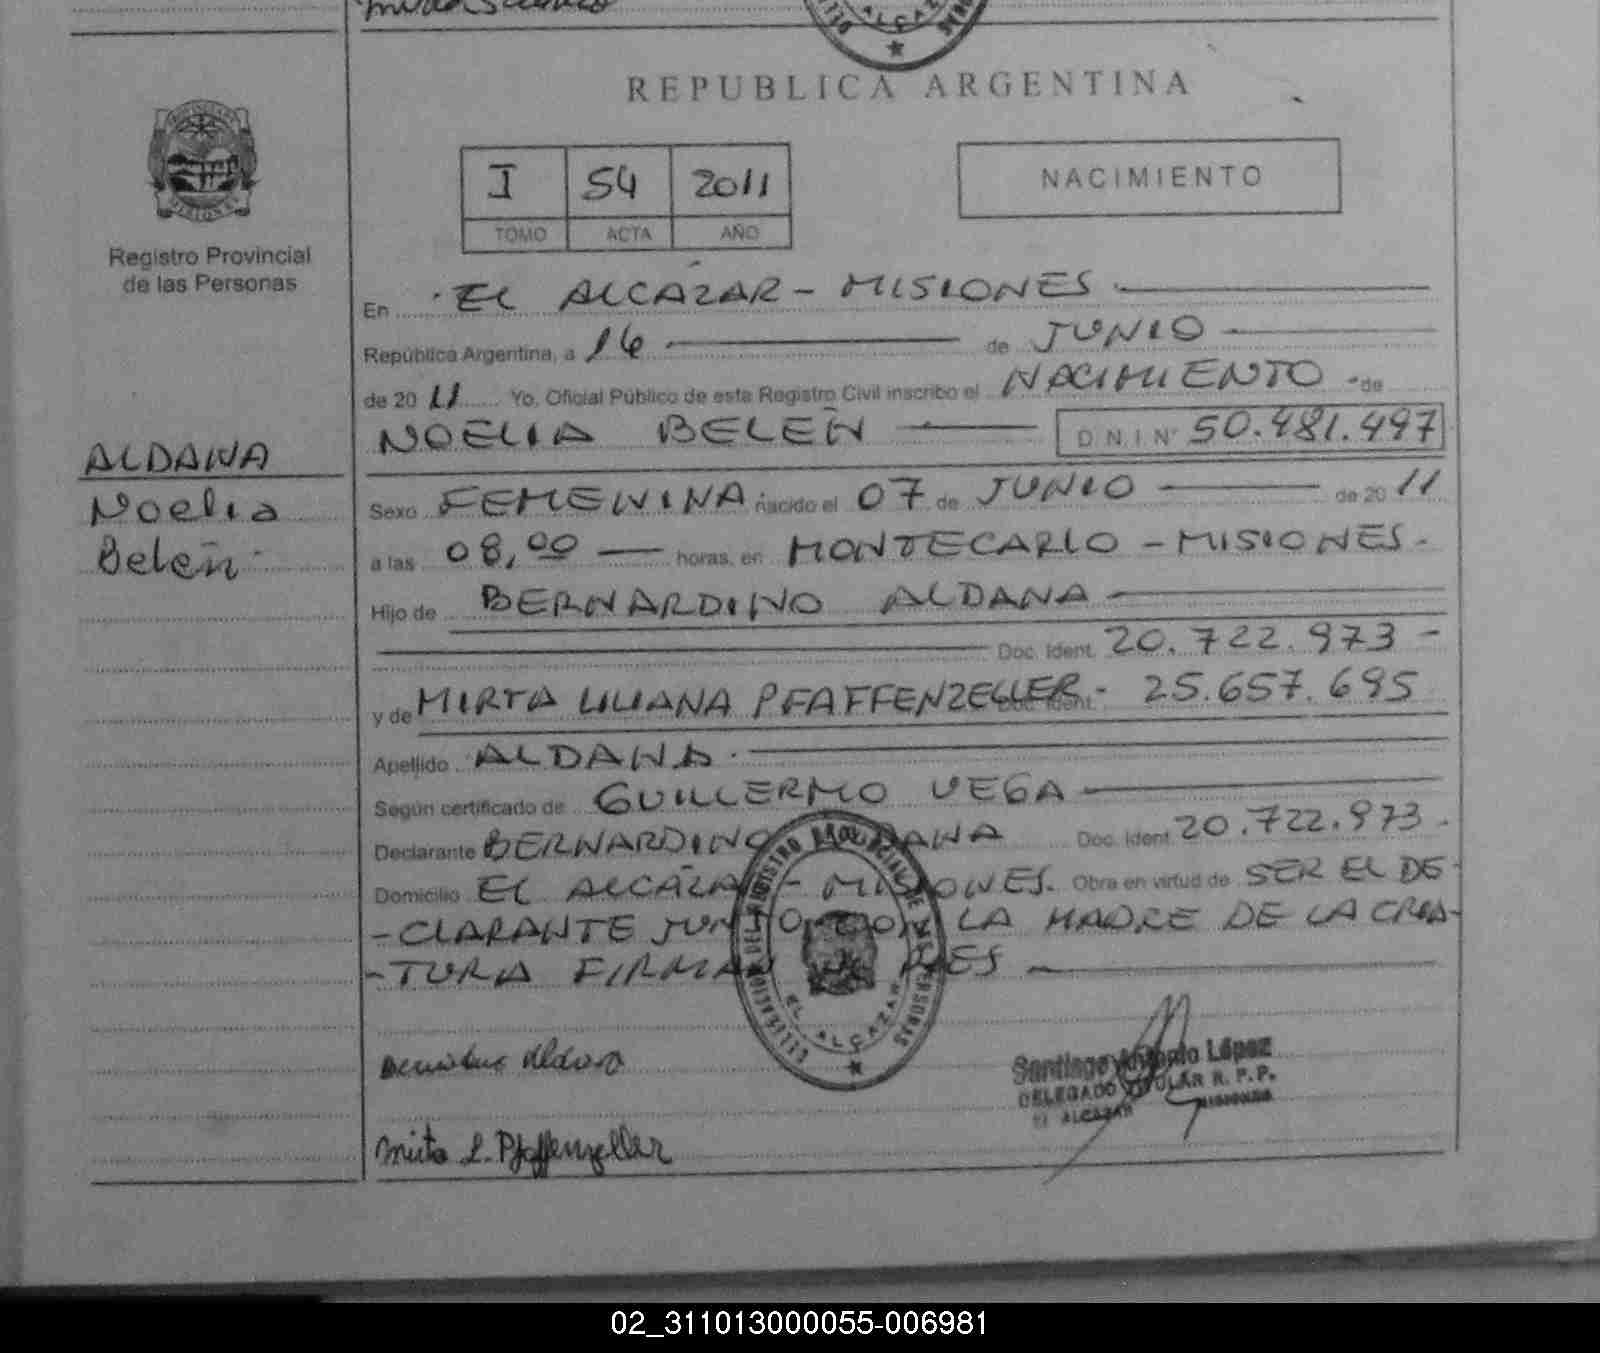 REPUBLICA ARGENTINA
Registro Provincial
de las Personas
I 54 2011
TOMO ACTA AÑO
NACIMIENTO
En EL ALCAZAR - MISIONES
República Argentina, a 16 de JUNIO
de 20 11 Yo, Oficial Público de este Registro Civil inscribo el NACIMIENTO de
NOELIA BELEN D.N.I. N° 50.481.497
ALDANA
Noelia
Belén
Sexo FEMENINA nacido el 07 de JUNIO de 20 11
a las 08,00 horas, en MONTECARLO - MISIONES.
Hijo de BERNARDINO ALDANA
Doc. Ident. 20.722.973 -
y de MIRTA LILIANA PFAFFENZELLER - Doc. Ident. 25.657.695
Apellido ALDANA
Según certificado de GUILLERMO VEGA
Declarante BERNARDINO ALDANA Doc. Ident. 20.722.973 -
Domicilio EL ALCAZAR - MISIONES. Obra en virtud de SER EL DE-
-CLARANTE JUNTO CON LA MADRE DE LA CREA-
-TURA FIRMAN
EL ALCAZAR
Aldana
Santiago Antonio López
DELEGADO TITULAR R. P. P.
EL ALCAZAR MISIONES
Mirta L. Pfaffenzeller
02_311013000055-006981